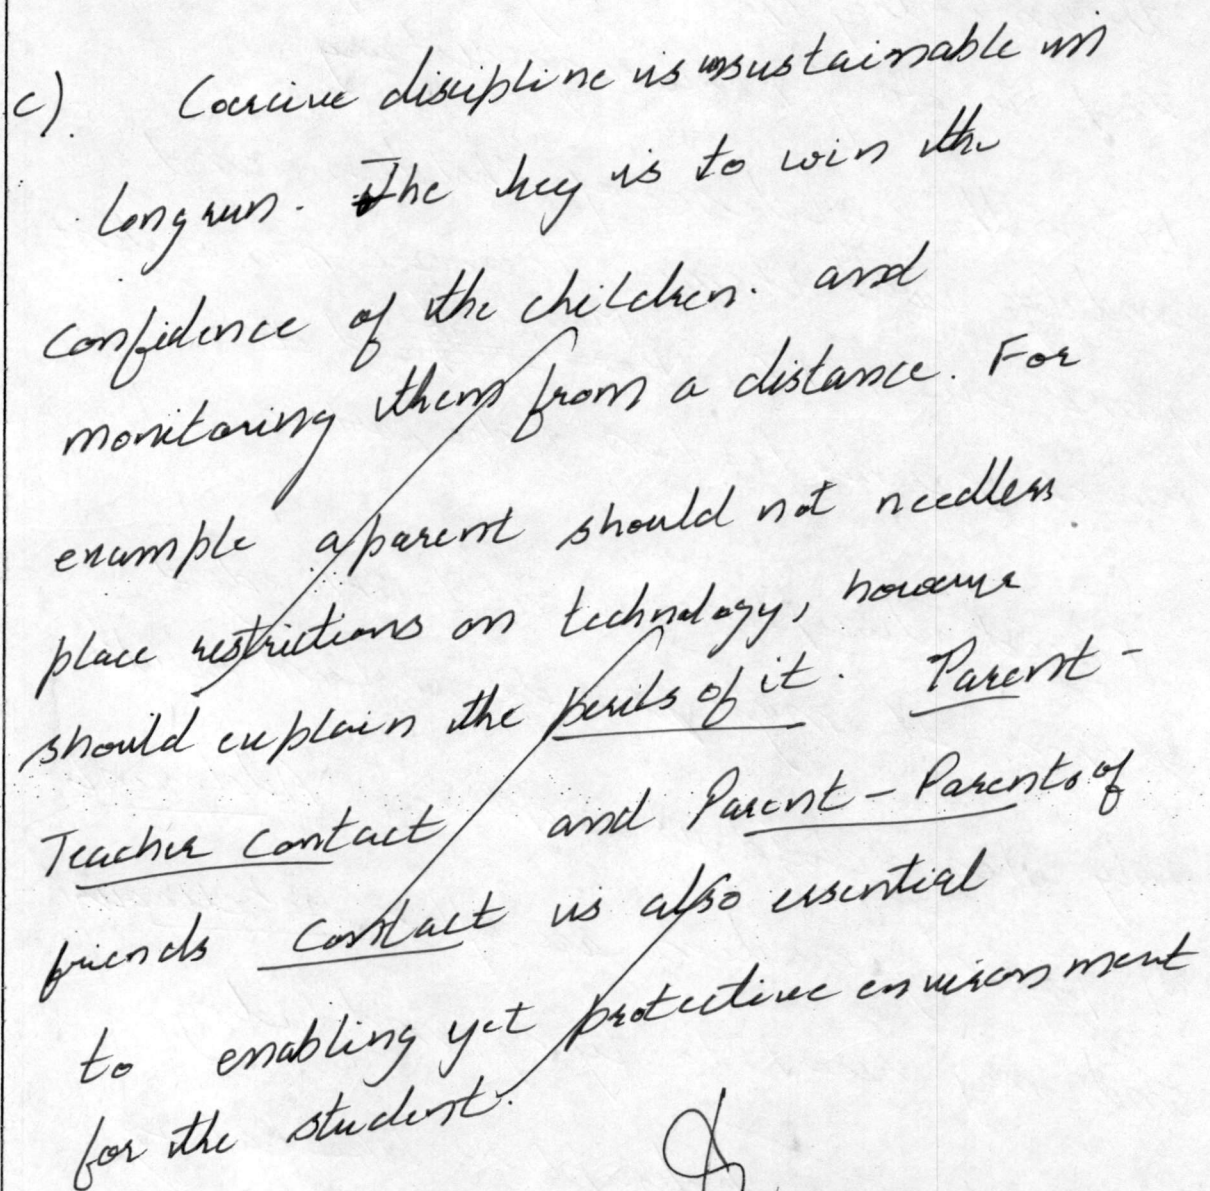 c). Coercive discipline is unsustainable in
long run. The key is to win the
confidence of the children. and
monitoring them from a distance. For
example a parent should not needless
place restrictions on technology, however
should explain the perils of it. Parent-
Teacher Contact and Parent-Parents of
friends Contact is also essential
to enabling yet protective environment
for the student.